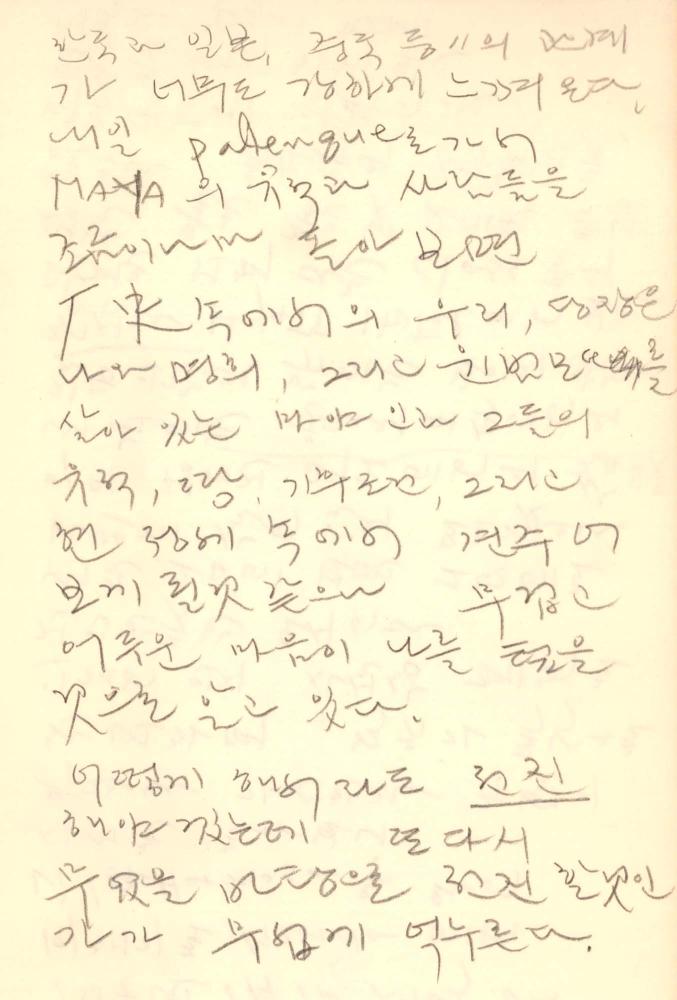 한국과 일본, 중국 등의 관계
가 너무도 강하게 느껴져 온다.
내일 palenque로 가서
MAYA의 유적과 사람들을
조금이나마 돌아 보면
厂史 속에서의 우리, 당장은
나와 명희, 그리고
살아 있는 마야인과 그들의
유적, 땅, 기후조건, 그리고
현 정세 속에서 견주어
보게 될것 같으나 무겁고
어두운 마음이 나를
것으로 알고 있다.
어떻게 해서라도 전진
해야 겠는데 또 다시
무엇을 바탕으로 전진 할 것인
가가 무섭게 억누른다.